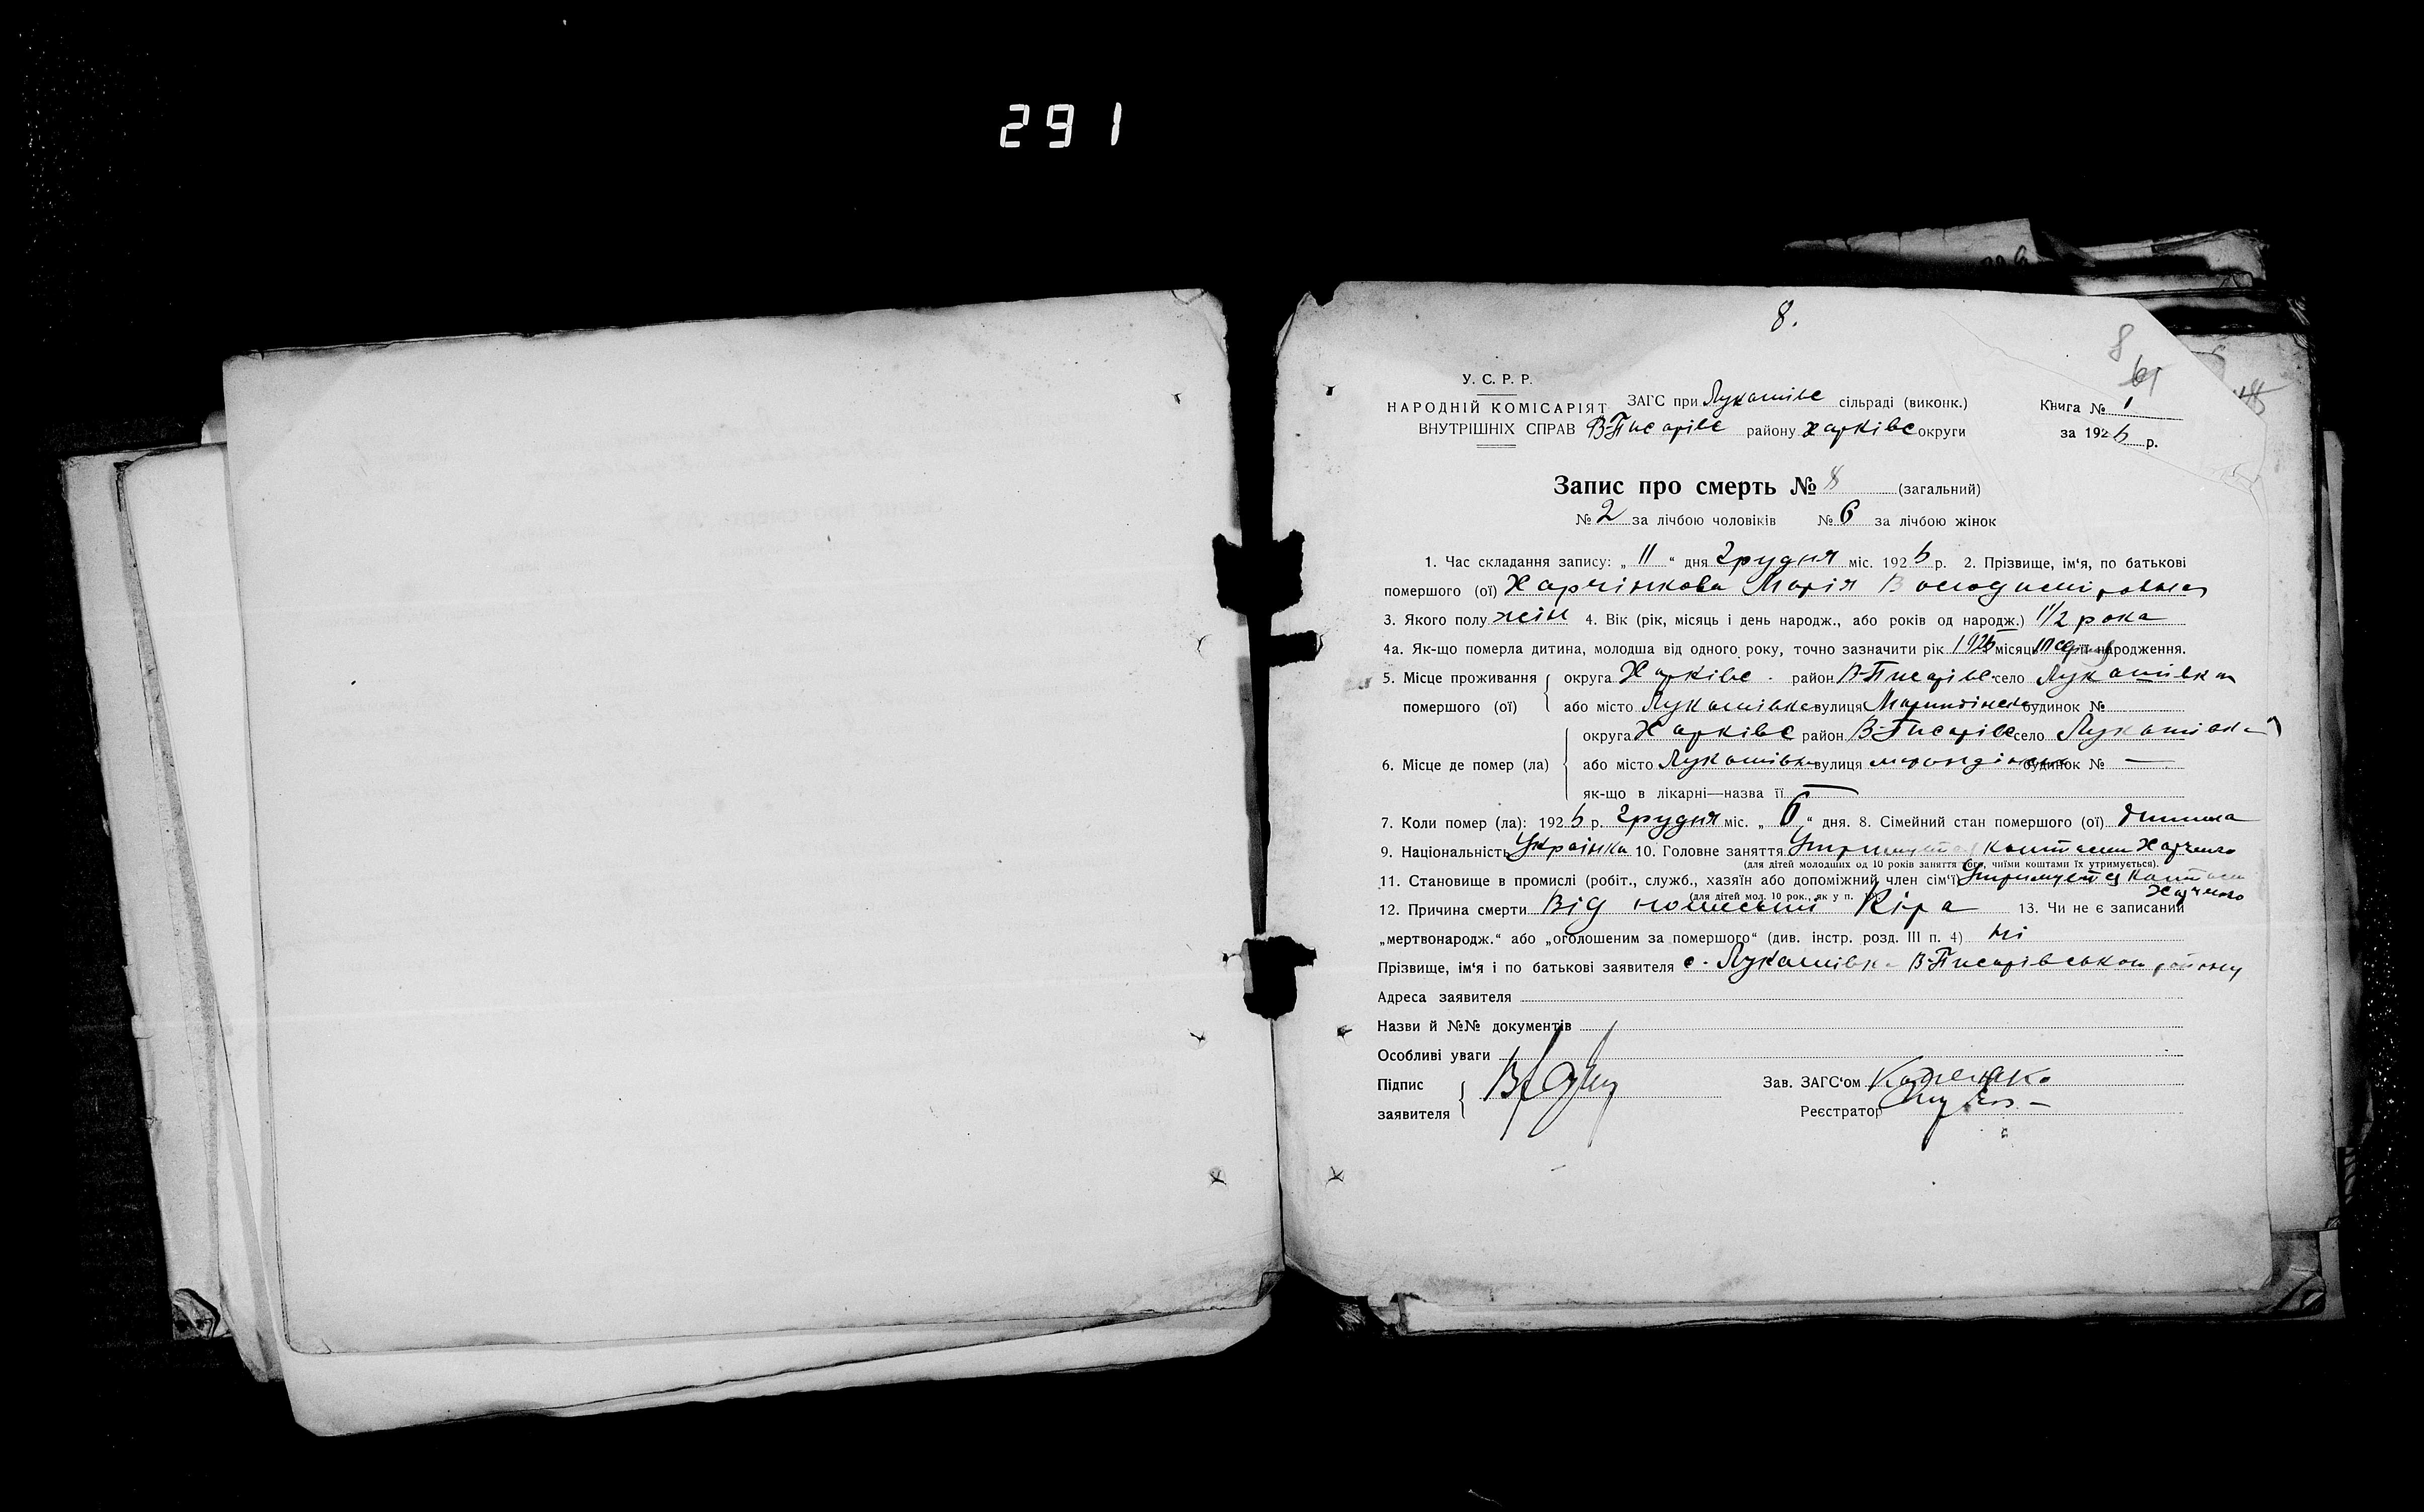 291
8.
8
61
У. С. Р. Р.
НАРОДНІЙ КОМІСАРІЯТ
ВНУТРІШНІХ СПРАВ
ЗАГС при Лукашівс сільраді (виконк.)
В-Писарівс району Харківс округи
Книга № 1
за 1926 р.
Запис про смерть № 8 (загальний)
№ 2 за лічбою чоловіків № 6 за лічбою жінок
1. Час складання запису: „ 11 “ дня Грудня міс. 1926 р. 2. Прізвище, ім'я, по батькові
помершого (ої) Харчінкова Марія
3. Якого полу жін 4. Вік (рік, місяць і день народж., або років од народж.) 1 1/2 рока
4а. Як-що померла дитина, молодша від одного року, точно зазначити рік 1926 місяць народження.
5. Місце проживання округа Харківс. район В-Писарівс. село Лукашівка
помершого (ої) або місто Лукашівка вулиця будинок №
округа Харківс район В-Писарівс село Лукашівка
6. Місце де помер (ла) або місто Лукашівка вулиця будинок № —
як-що в лікарні—назва її —
7. Коли помер (ла): 1926 р. Грудня міс. „ 6 “ дня. 8. Сімейний стан помершого (ої) дитина
9. Національність Українка 10. Головне заняття Утримується коштами Харченко
(для дітей молодших од 10 років заняття того, чиїми коштами їх утримується).
11. Становище в промислі (робіт., служб., хазяїн або допоміжний член сім'ї) Утримується коштами
Харченко
(для дітей мол. 10 рок., як у п. 10).
12. Причина смерти Від Кіра 13. Чи не є записаний
„мертвонародж.“ або „оголошеним за помершого“ (див. інстр. розд. III п. 4) Ні
Прізвище, ім'я і по батькові заявителя с. Лукашівка В-Писарівського району
Адреса заявителя
Назви й №№ документів
Особливі уваги
Підпис
заявителя
Зав. ЗАГС'ом
Реєстратор